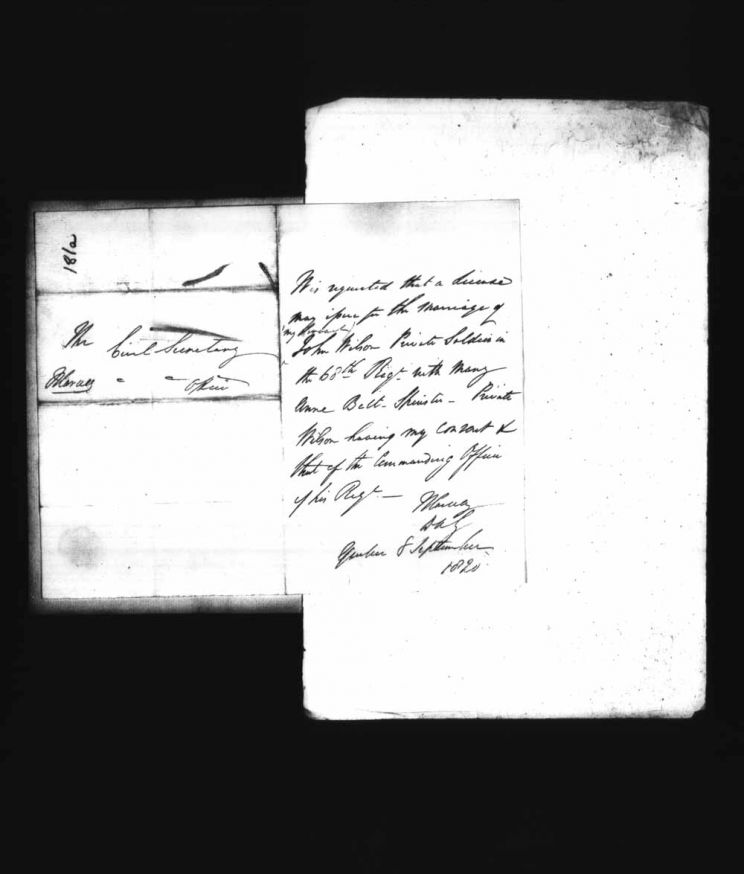 181a
The
Civil Secretary
Office
It is requested that a license
may issue for the marriage of
(my Servant)
John Wilson Private Soldier in
the 68th Regt with Mary
Anne Belt - Spinster - Private
Wilson having my consent &
that of the Commanding Officer
of his Regt —
Quebec 8 September
1820